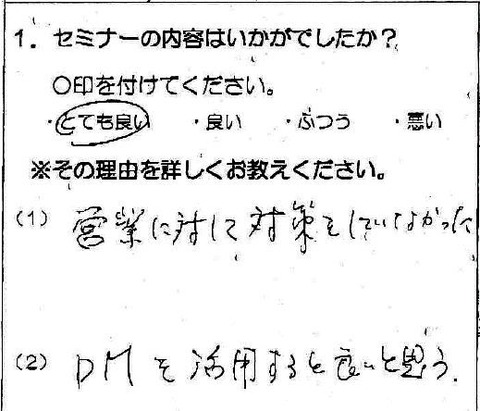 1. セミナーの内容はいかがでしたか？
○印を付けてください。
・とても良い ・良い ・ふつう ・悪い
※その理由を詳しくお教えください。
(1) 営業に対して対策をしていなかった
(2) DMを活用すると良いと思う.